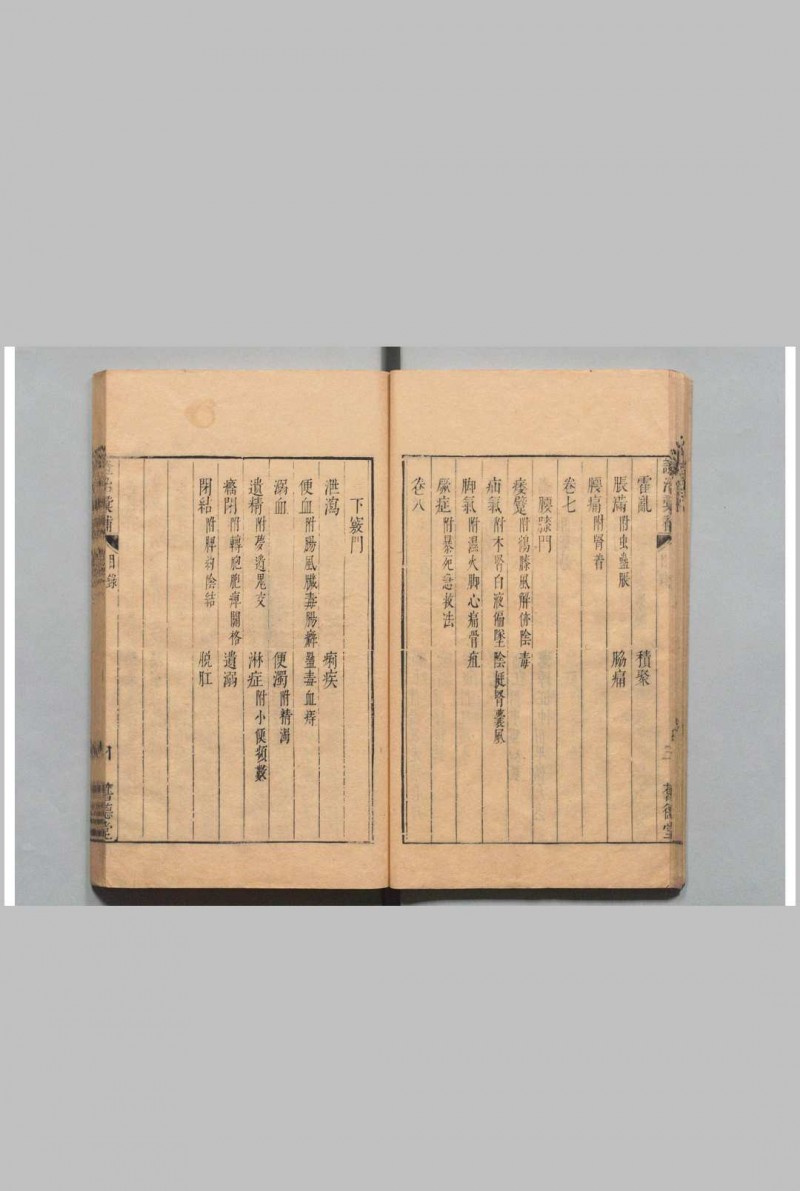 霍亂 積聚
脹滿附虫蠱脹 脇痛
腰痛附腎着
卷七
腰膝門
痿躄附鶴膝風解㑊陰毒
疝氣附木腎白液偏墜陰挺腎囊風
脚氣附濕火脚心痛骨疽
厥症附暴死急救法
卷八
舊德堂
證治彙補 目錄
下竅門
泄瀉 痢疾
便血附腸風臟毒腸癖蠱毒血痔
溺血 便濁附精濁
遺精附夢遺鬼交 淋症附小便頻數
癃閉附轉胞胞痺關格 遺溺
閉結附脾約陰結 脫肛
舊德堂